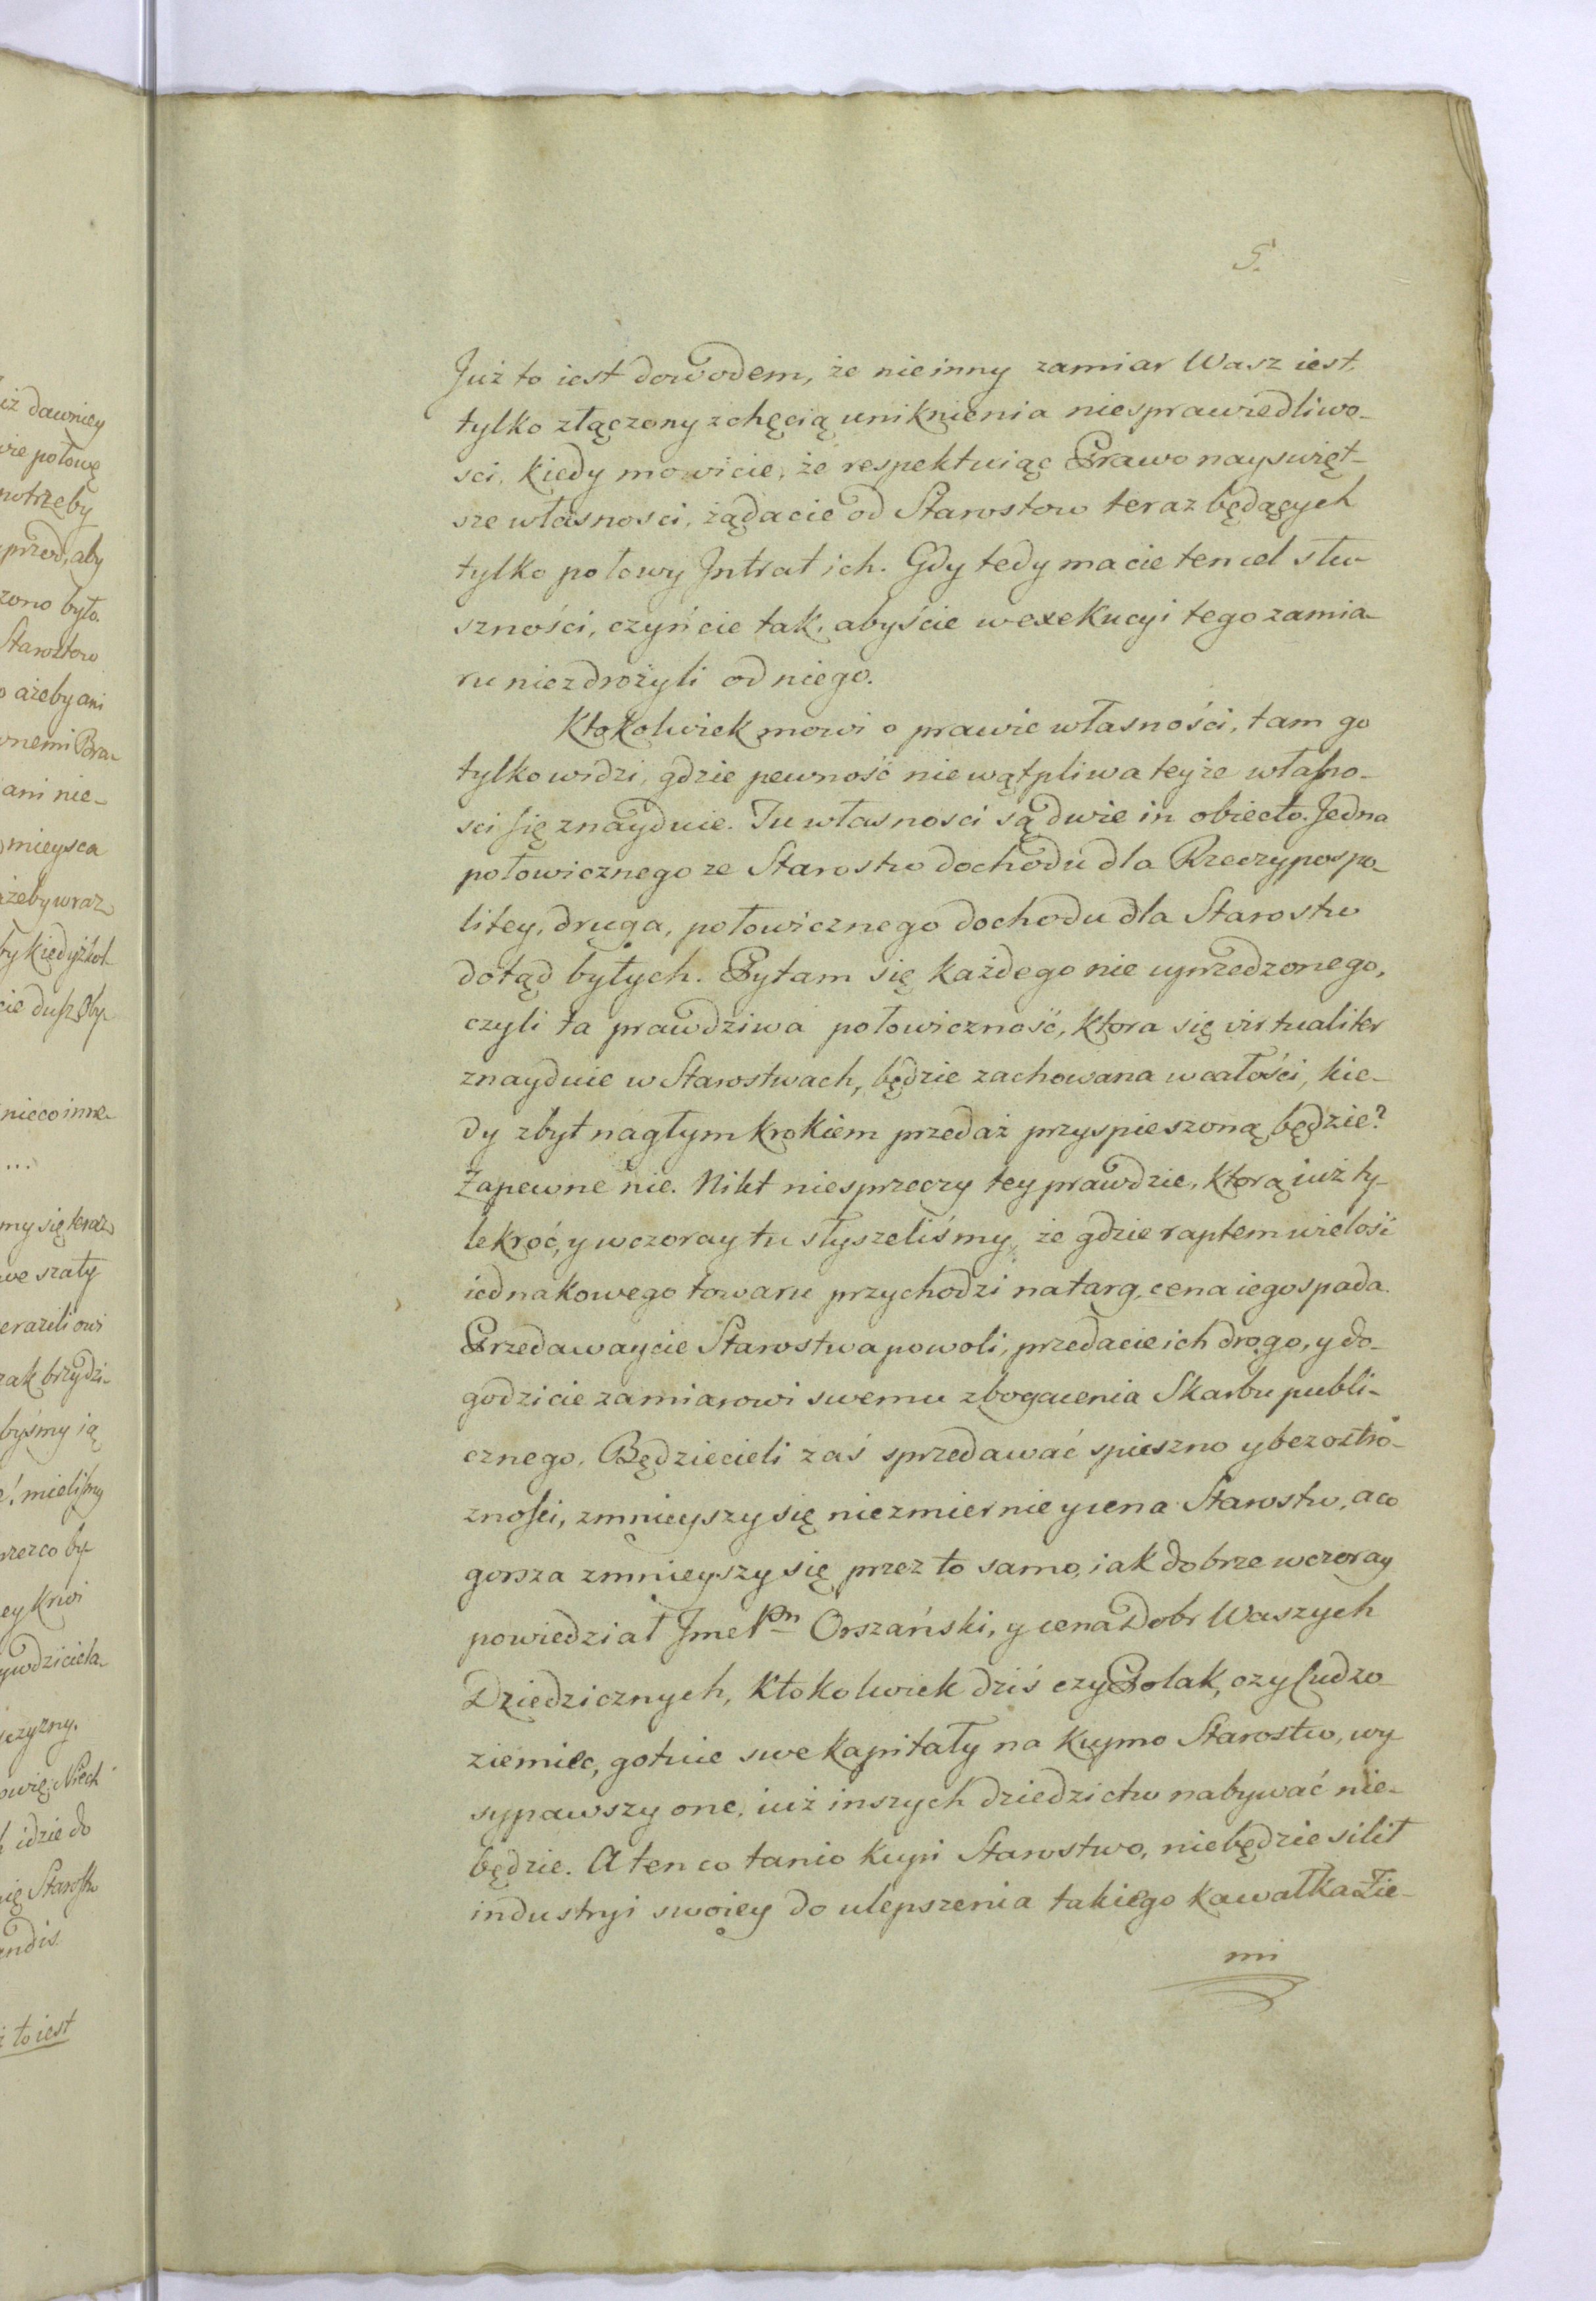 iż dawniey
potowę
potrzeby
przod, aby
zono było.
Starostow
ażeby ani
ani nie-
mieysca
żeby wraz
by kiedyżkol-
cie dusz Oby-
nieco inne
...
my się teraz
we szaty
erazili owi
zak brzydzi-
byśmy ią
mieliśmy
przez co by-
ey krwi
czyzny.
Niech
idzie do
się Starostw
i to iest
5.
Już to iest dowodem, że nie inny zamiar Wasz iest.
tylko złączony z chęcią uniknienia niesprawiedliwo-
sci, kiedy mowicie, że respektuiąc Prawo nayswięt-
sze własnosci, żądacie od Starostow teraz będących
tylko połowy Intrat ich. Gdy tedy macie ten cel słu-
szności, czyńcie tak, abyście w exekucyi tego zamia-
ru nie zdrożyli od niego.
Ktokolwiek mowi o prawie własności, tam go
tylko widzi, gdzie pewność niewątpliwa teyże własno-
sci się znayduie. Tu własnosci są dwie in obiecto. Jedna
połowicznego ze Starostw dochodu dla Rzeczypospo-
litey, druga, połowicznego dochodu dla Starostw
dotąd byłych. Pytam się każdego nie uprzedzonego,
czyli ta prawdziwa połowiczność, ktora się virtualiter
znayduie w Starostwach, będzie zachowana w całości, kie-
dy zbyt nagłym krokiem przedaż przyspieszoną będzie?
Zapewne nie. Nikt niesprzeczy tey prawdzie, ktorą iuż ty-
lekroć, y wczoray tu słyszeliśmy, że gdzie raptem wielość
iednakowego towaru przychodzi na targ, cena iego spada.
Przedawaycie Starostwa powoli, przedacie ich drogo, y do-
godzicie zamiarowi swemu zbogacenia Skarbu publi-
cznego. Będziecieli zaś sprzedawać spieszno y bez ostro-
zności, zmnieyszy się niezmiernie y cena Starostw, a co
gorsza zmnieyszy się przez to samo, iak dobrze wczoray
powiedział Jmc Pn Orszański, y cena Dobr Waszych
Dziedzicznych, Ktokolwiek dziś czy Polak, czy Cudzo-
ziemiec, gotuie swe kapitały na kupno Starostw, wy-
sypawszy one, iuż inszych dziedzictw nabywać nie-
będzie. A ten co tanio kupi Starostwo, niebędzie silił
industryi swoiey do ulepszenia takiego kawałka Zie-
mi